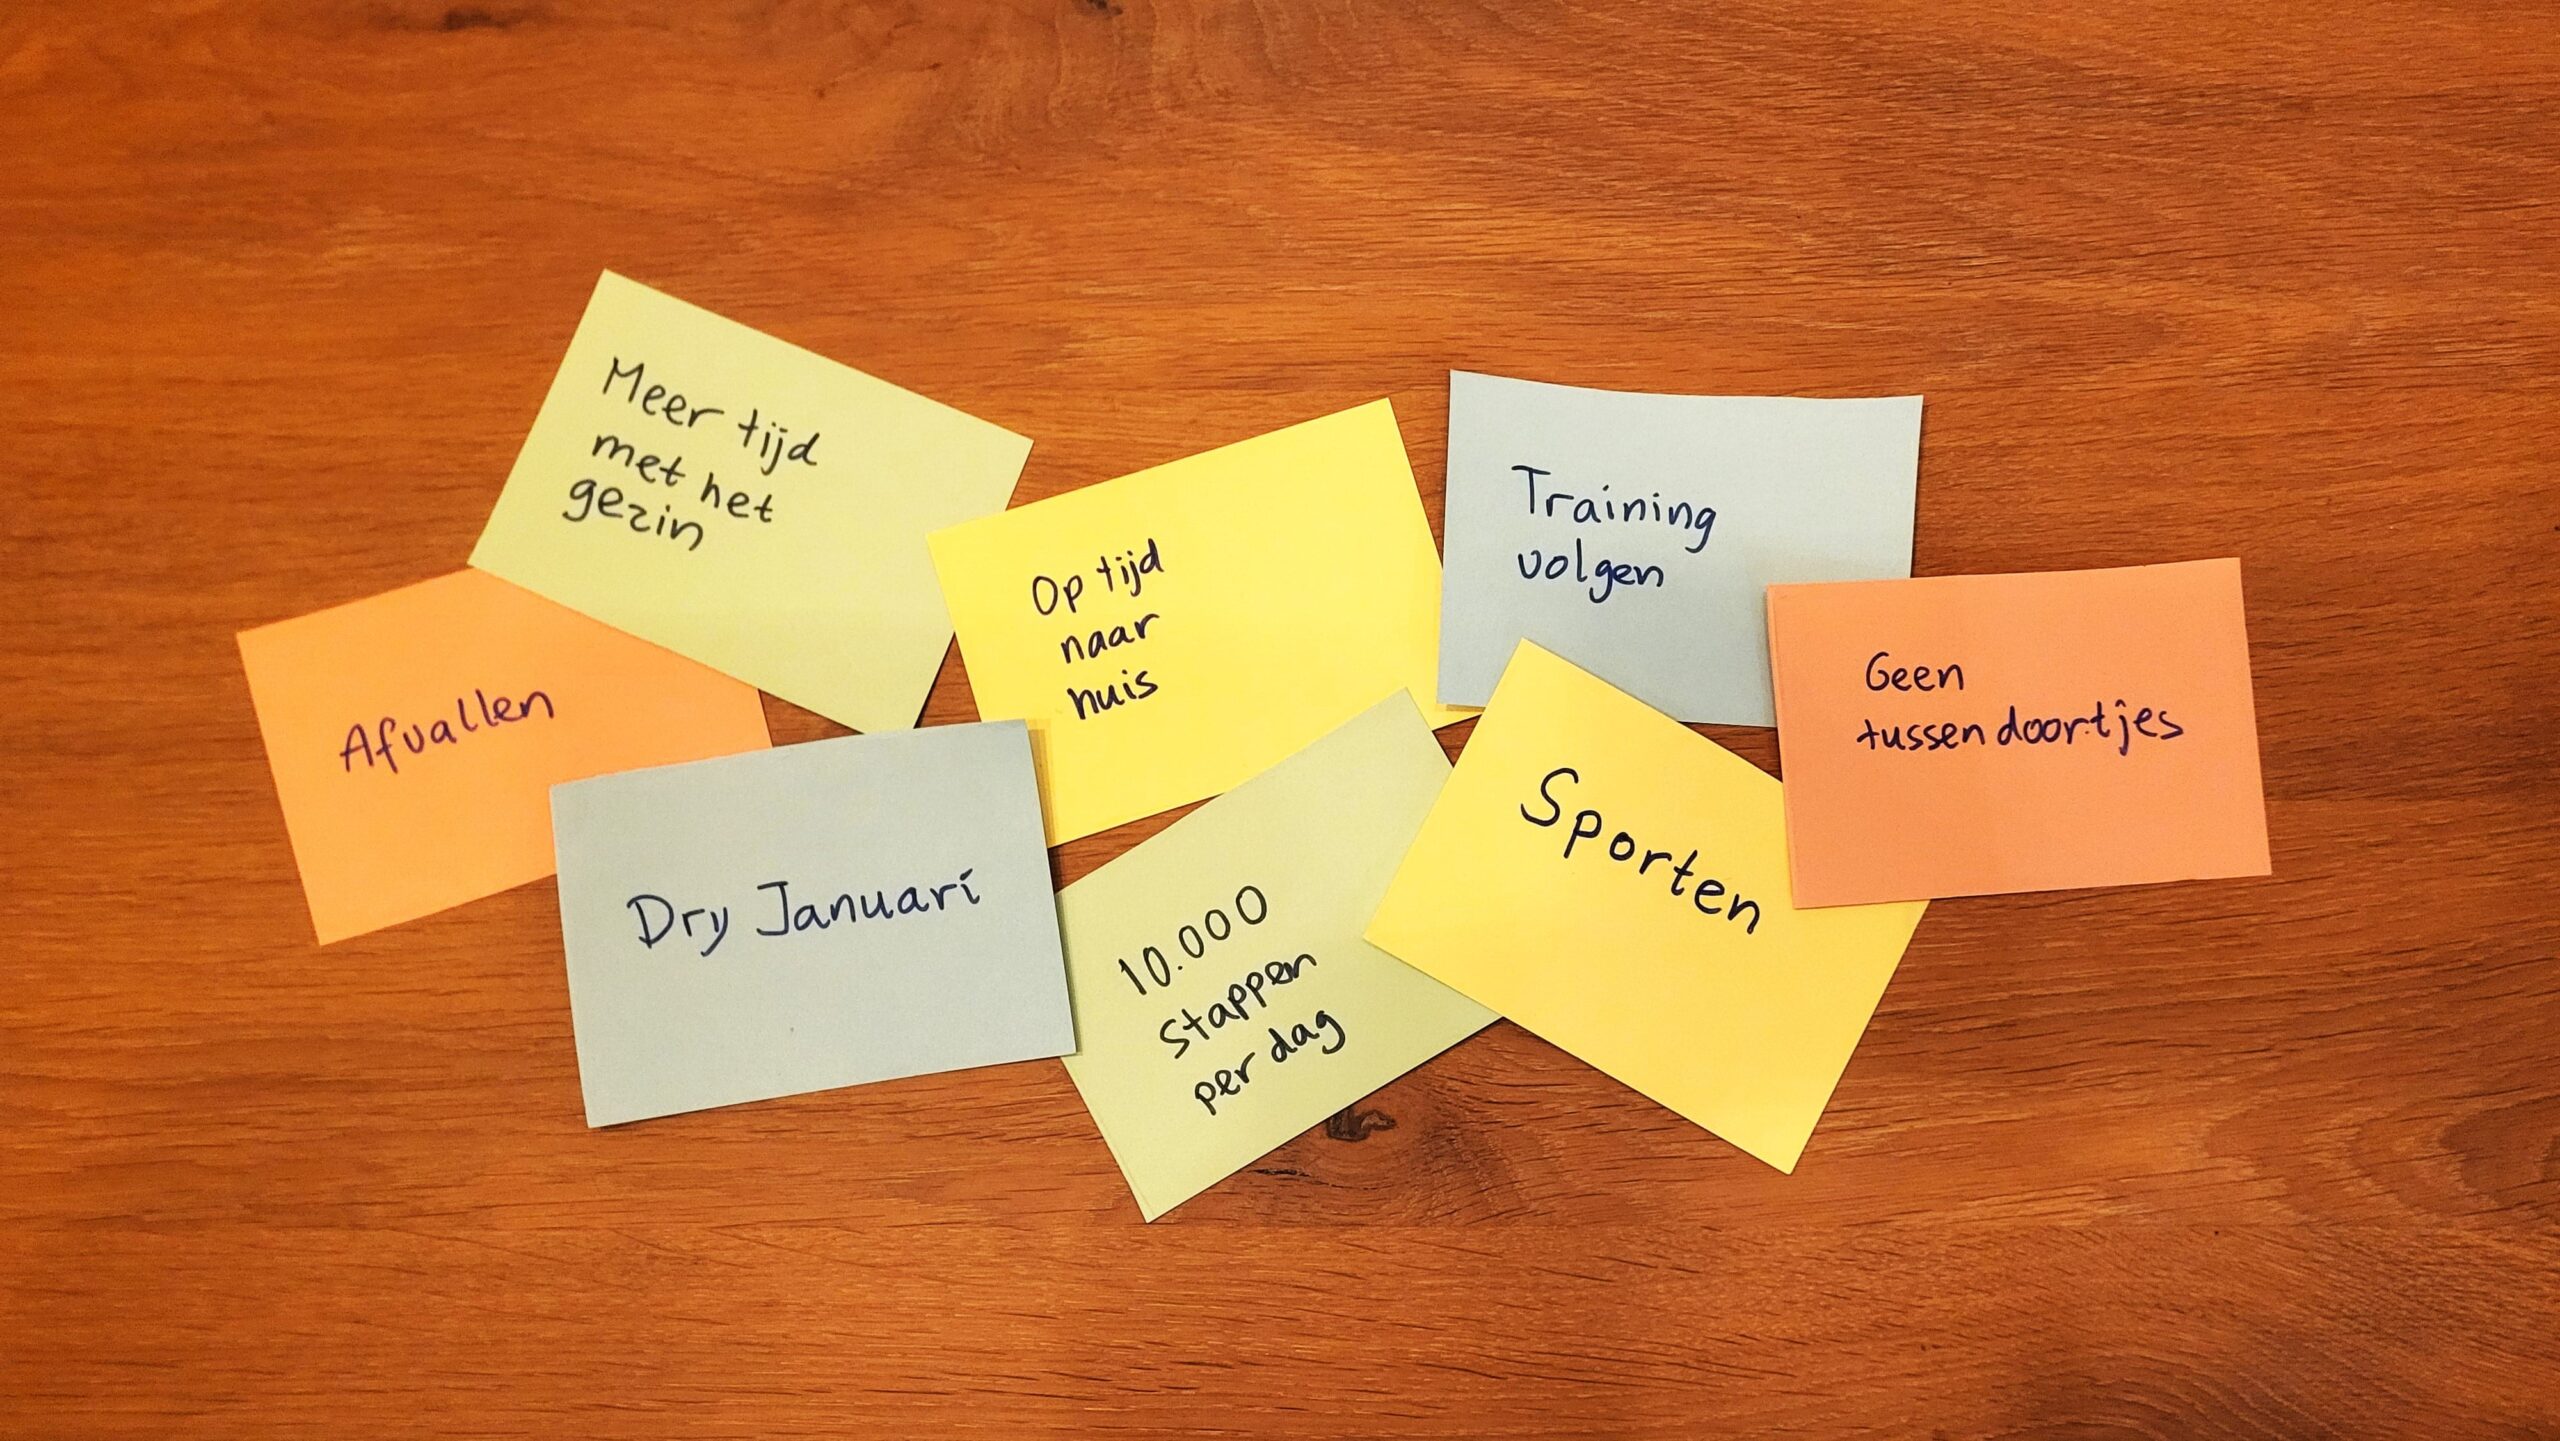 Meer tijd
met het
gezin
Op tijd
naar
huis
Training
volgen
Geen
tussendoortjes
Afvallen
Dry Januari
10.000
stappen
per dag
Sporten